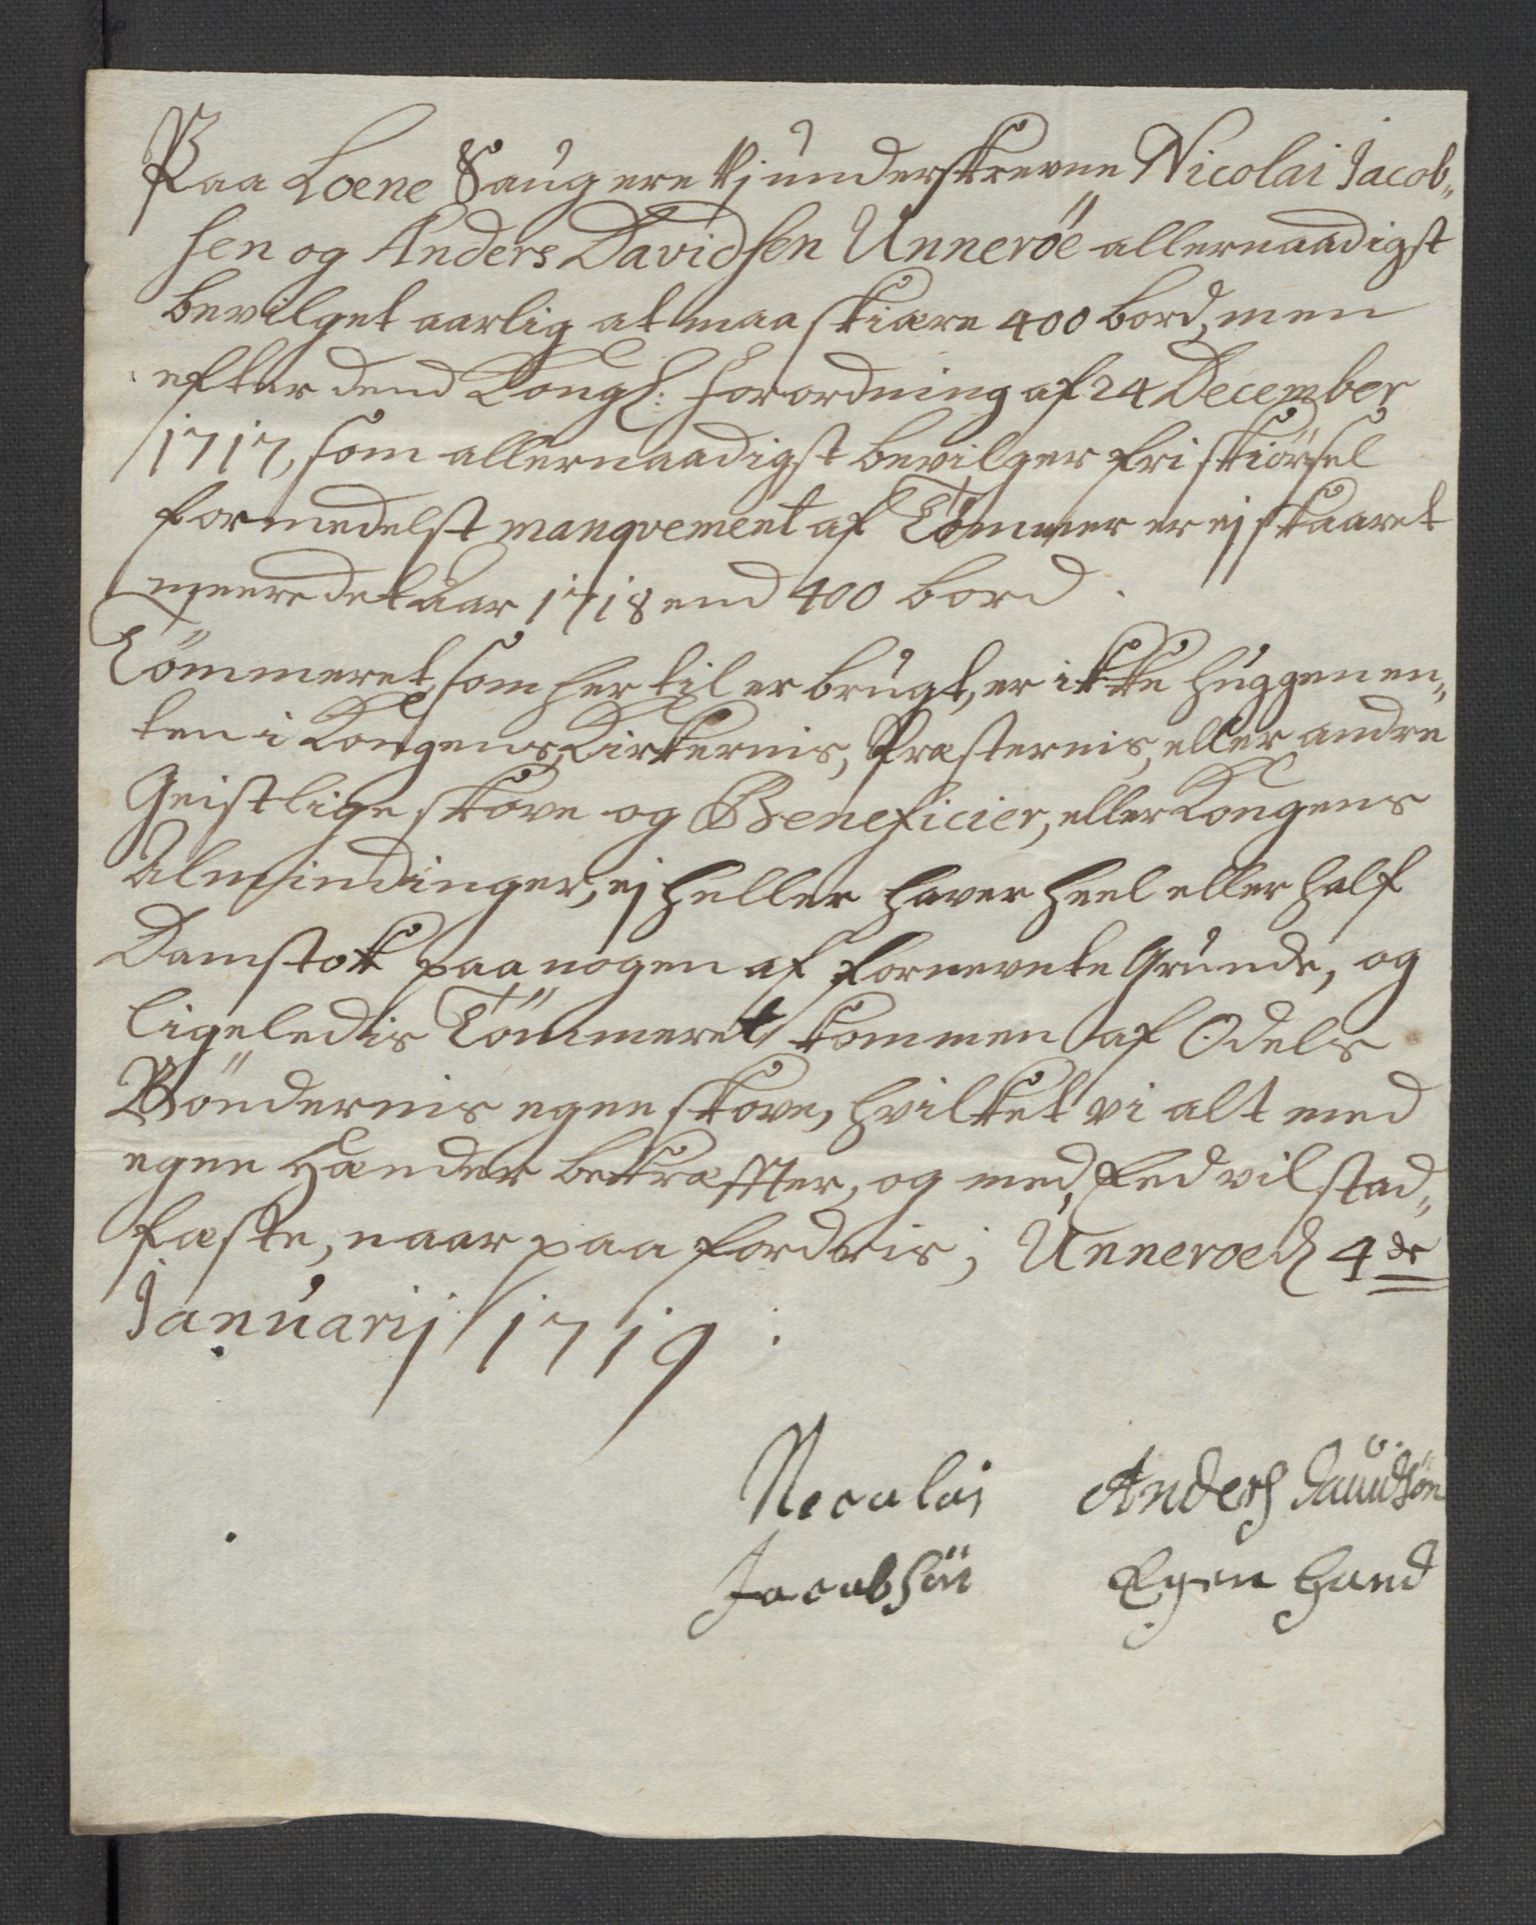 Paa Loene Saug ere Vj underskrevne Nicolai Jacob„
sen og Anders Davidsen Unneröe allernaadigst
bevilget aarlig at maa skiære 400 bord, men
efter dend Kongl: forordning af 24 December
1717, som allernaadigst bevilger frj skiörsel
formedelst manqvement af Tömmer er ej skaaret
meere det aar 1718 end 400 bord.
Tömmeret, som her til er brugt, er ikke huggen en„
ten i Kongens, Kirkernis, Præsternis, eller andre
Geistlige skove og Beneficier, eller Kongens
Almindinger, ej heller haver heel eller half
Damstok paa nogen af fornevnte Grunde, og
ligeledis Tömmeret kommen af Odels
Böndernis egne skove, hvilket vi alt med
egne Hænder bekræffter, og med Eed vil stad„
fæste, naar paa fordris; Unneroe d 4de
Januarij 1719.
Necalai Anders Dauidsön
Jacabsön Egen Hand